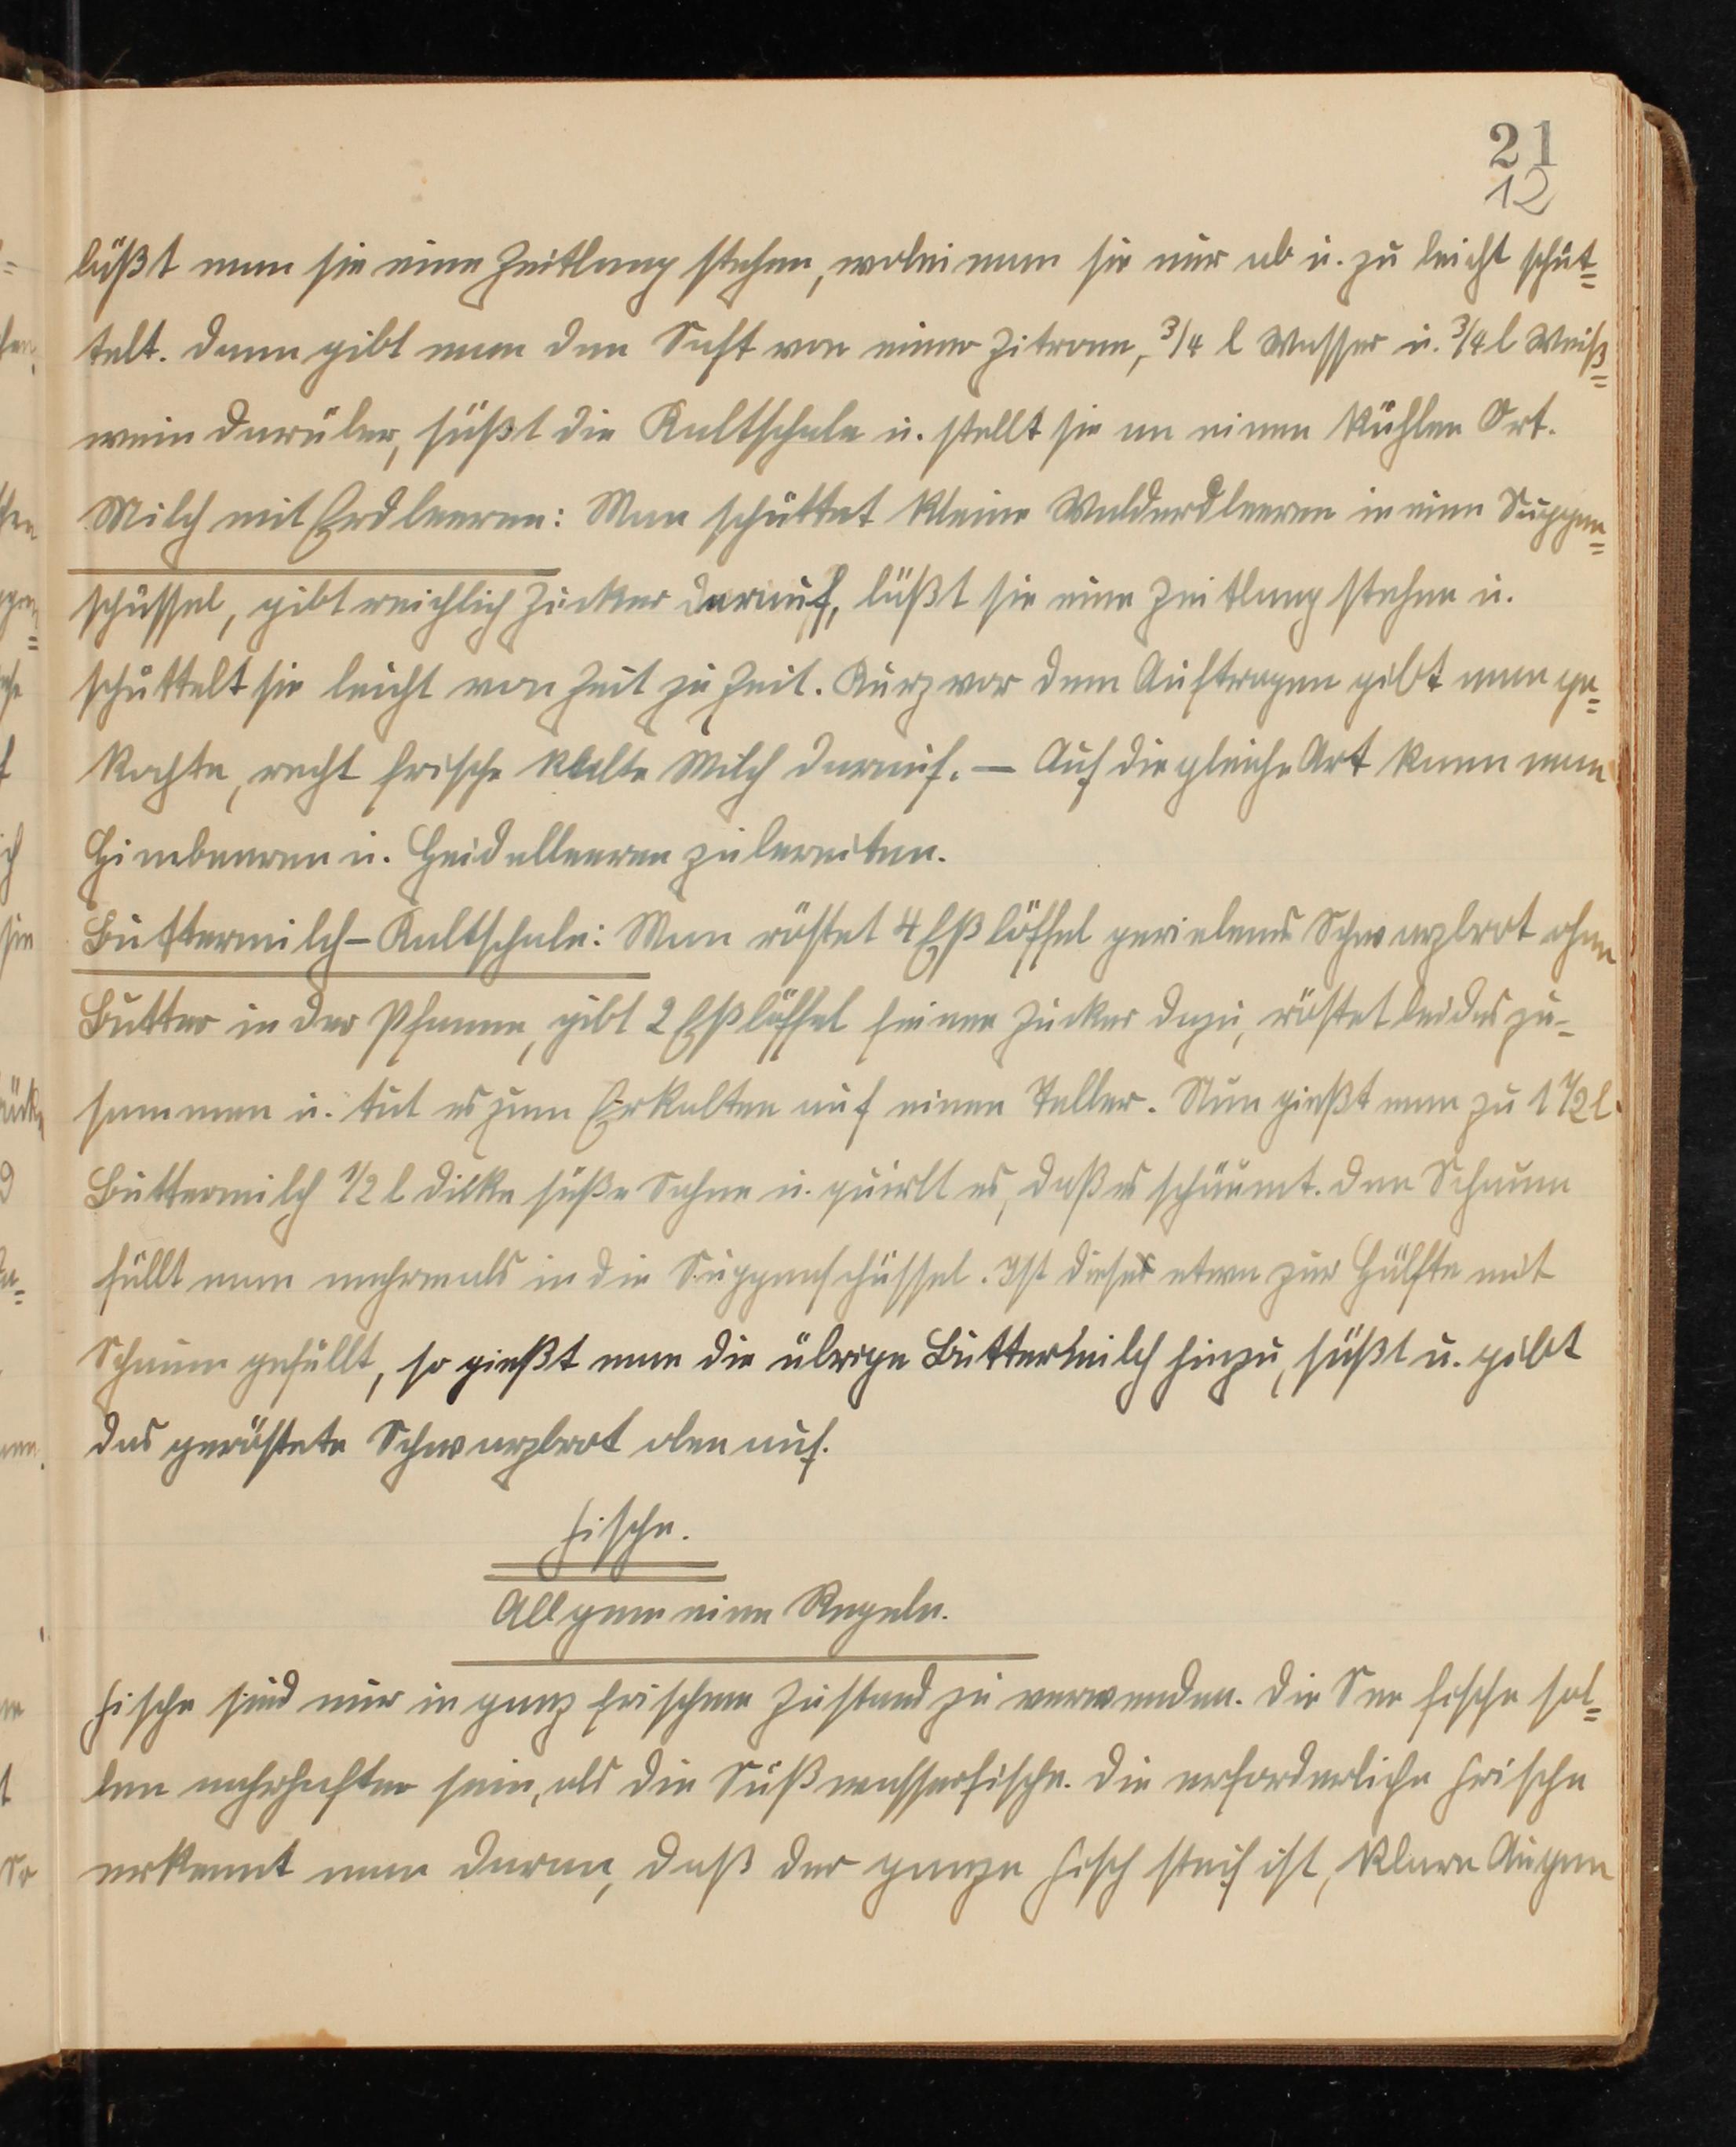 21
12
läßt man sie eine Zeitlang stehen, wobei man sie nur ab u. zu leicht schüt=
telt. Dann gibt man den Saft von einer Zitrone, 3/4 l Wasser u. 3/4 l Weiß=
wein darüber, süßt die Kaltschale u. stellt sie an einen kühlen Ort.
Milch mit Erdbeeren: Man schüttet kleine Walderdbeeren in eine Suppen=
schüssel, gibt reichlich Zucker darauf, läßt sie eine Zeitlang stehen u.
schüttelt sie leicht von Zeit zu Zeit. Kurz vor dem Auftragen gibt man ge=
kochte, recht frische kalte Milch darauf. — Auf die gleiche Art kann man
Himbeeren u. Heidelbeeren zubereiten.
Buttermilch-Kaltschale: Man röstet 4 Eßlöffel geriebenes Schwarzbrot ohne
Butter in der Pfanne, gibt 2 Eßlöffel feinen Zucker dazu, röstet beides zu-
sammen u. tut es zum Erkalten auf einen Teller. Nun gießt man zu 1 1/2 l
Buttermilch 1/2 l dicke süße Sahne u. quirlt es, daß es schäumt. Den Schaum
füllt man mehrmals in die Suppenschüssel. Ist dieses etwa zur Hälfte mit
Schaum gefüllt, so gießt man die übrige Buttermilch hinzu, süßt u. gibt
das geröstete Schwarzbrot oben auf.
Fische.
Allgemeine Regeln.
Fische sind nur in ganz frischem Zustand zu verwenden. Die See fische sol=
len nahrhafter sein, als die Süßwasserfische. Die erforderliche Frische
erkennt man daran, daß der ganze Fisch steif ist, klare Augen